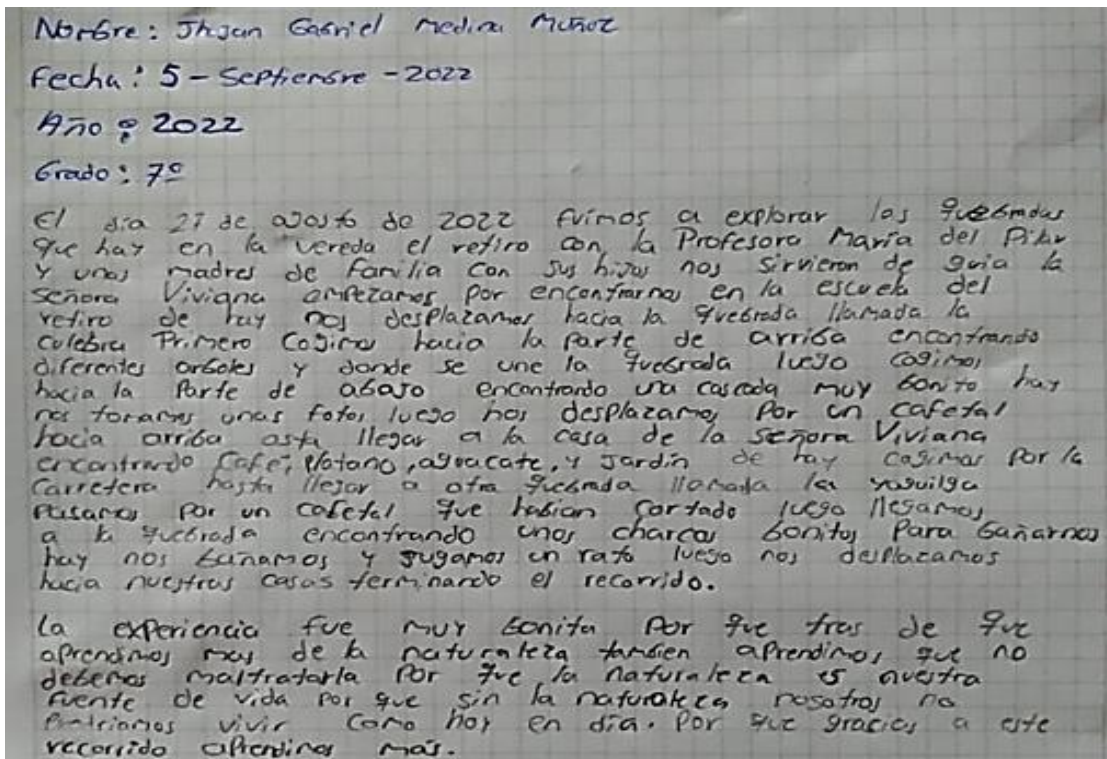 Nombre: Jhojan Gabriel Medina Muñoz
Fecha: 5 - Septiembre - 2022
Año: 2022
Grado: 7º
El día 27 de agosto de 2022 fuimos a explorar las quebradas
que hay en la vereda el retiro con la Profesora María del Pilar
y unas madres de familia con sus hijos nos sirvieron de guia la
señora Viviana empezamos por encontrarnos en la escuela del
retiro de hay nos desplazamos hacia la quebrada llamada la
culebra Primero Cogimos hacia la parte de arriba encontrando
diferentes arboles y donde se une la quebrada luego cogimos
hacia la Parte de abajo encontrando una cascada muy bonito hay
nos tomamos unas fotos luego nos desplazamos Por un cafetal
hacia arriba asta llegar a la casa de la señora Viviana
encontrando Cafe, platano, aguacate, y Jardín de hay cogimos Por la
Carretera hasta llegar a otra quebrada llamada la yaguilga
Pasamos Por un cafetal que habian cortado luego llegamos
a la quebrada encontrando unos charcos bonitos Para bañarnos
hay nos bañamos y jugamos un rato luego nos desplazamos
hacia nuestras casas terminando el recorrido.
La experiencia fue muy bonita Por que tras de que
aprendimos mas de la naturaleza tambien aprendimos que no
debemos maltratarla Por que la naturaleza es nuestra
fuente de vida Por que sin la naturaleza nosotros no
Podriamos vivir como hoy en día. Por que gracias a este
recorrido aprendimos más.